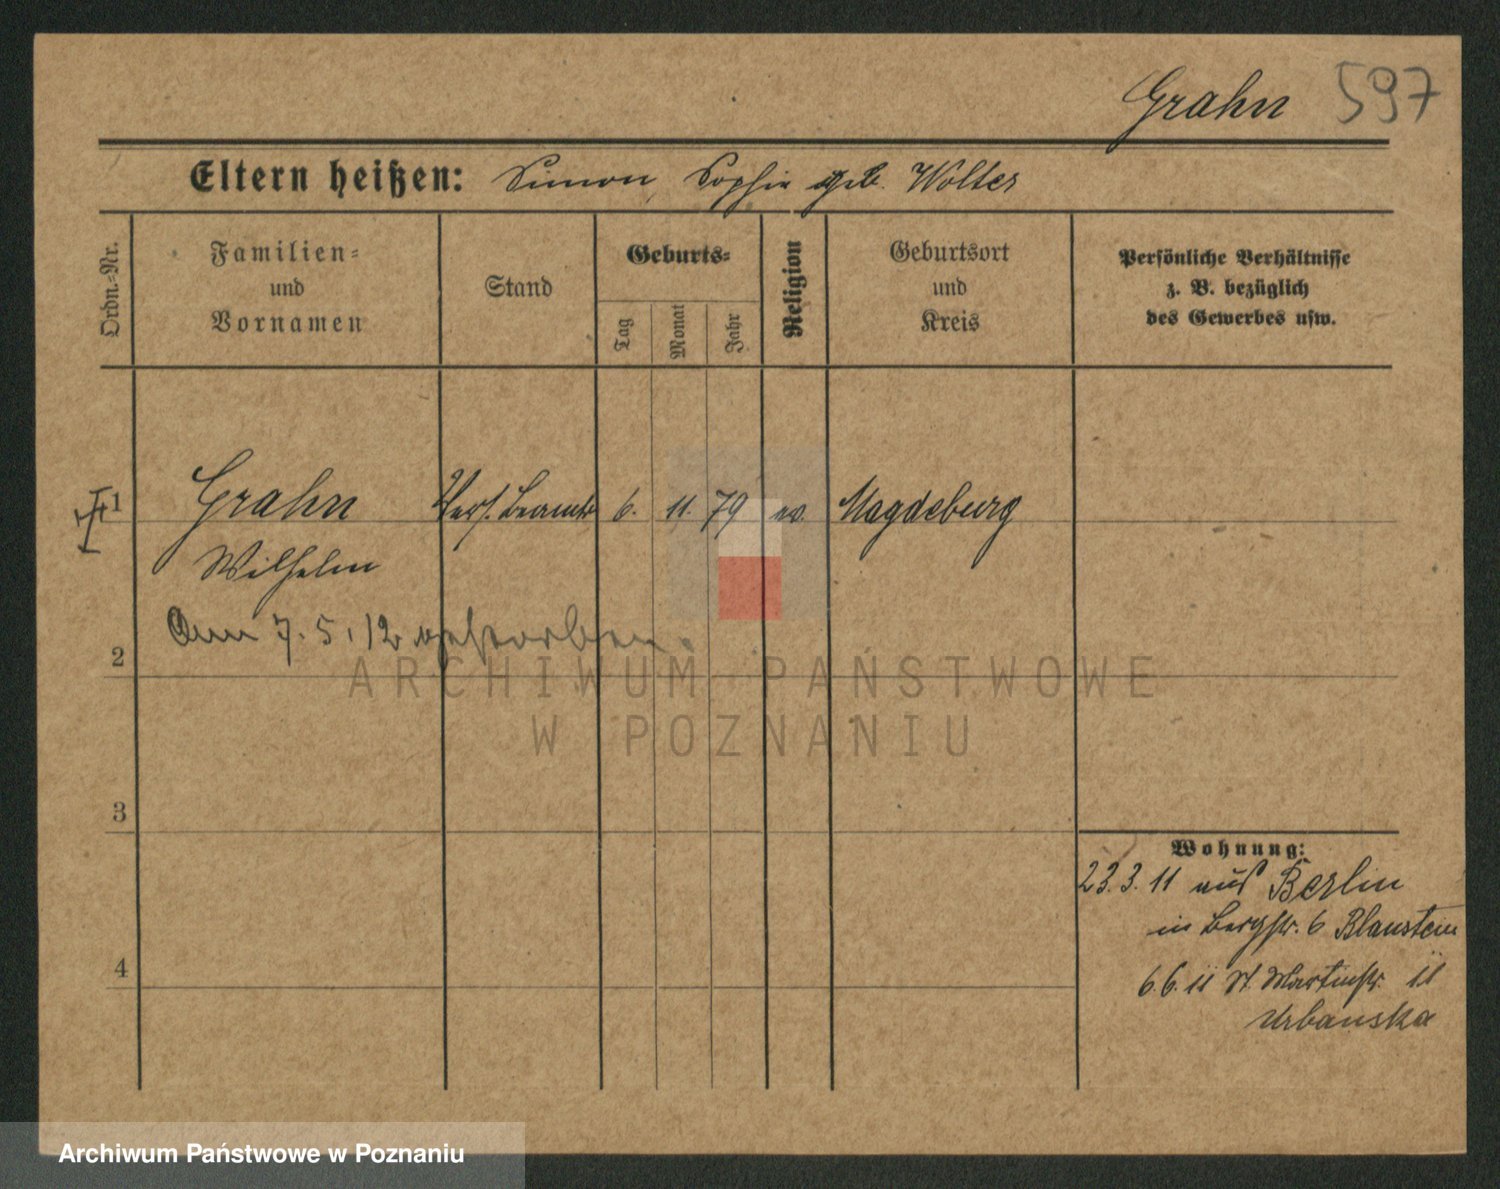 Grahn 597
Eltern heißen: Simon, Sophie geb. Wolter
Ordn.-Nr.
Familien-
und
Vornamen
Stand
Geburts-
Tag
Monat
Jahr
Religion
Geburtsort
und
Kreis
Persönliche Verhältnisse
z. B. bezüglich
des Gewerbes usw.
1 Grahn Vers. Beamter 6. 11. 79 ev. Magdeburg
Wilhelm
Am 7. 5. 12 gestorben.
2
3
4
Wohnung:
23. 3. 11 aus Berlin
in Bergstr. 6 Blaustein
6. 6. 11 St. Martinstr. 11
Urbanska
ARCHIWUM PAŃSTWOWE
W POZNANIU
Archiwum Państwowe w Poznaniu